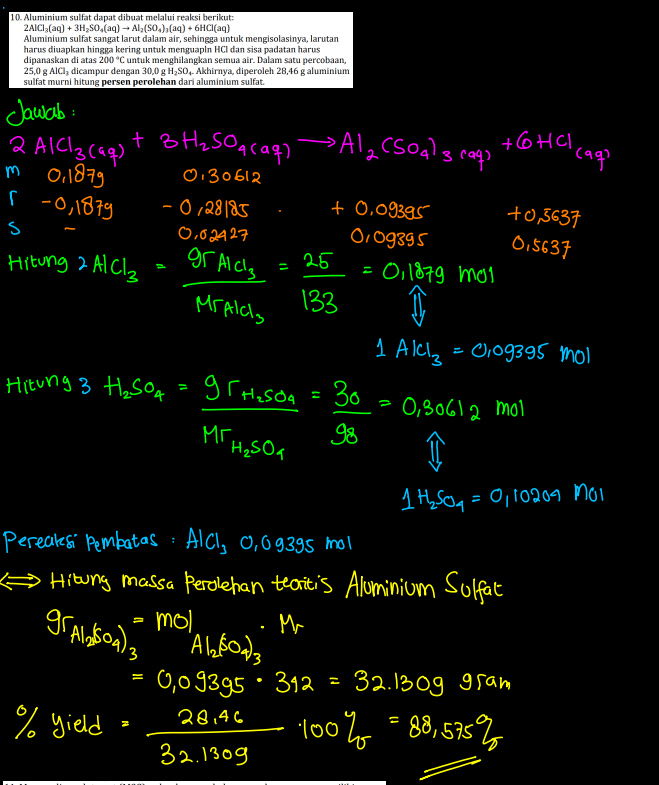 10. Aluminium sulfat dapat dibuat melalui reaksi berikut:
2AlCl₃(aq) + 3H₂SO₄(aq) → Al₂(SO₄)₃(aq) + 6HCl(aq)
Aluminium sulfat sangat larut dalam air, sehingga untuk mengisolasinya, larutan
harus diuapkan hingga kering untuk menguapln HCl dan sisa padatan harus
dipanaskan di atas 200 °C untuk menghilangkan semua air. Dalam satu percobaan,
25,0 g AlCl₃ dicampur dengan 30,0 g H₂SO₄. Akhirnya, diperoleh 28,46 g aluminium
sulfat murni hitung persen perolehan dari aluminium sulfat.
Jawab :
2 AlCl₃(aq) + 3H₂SO₄(aq) → Al₂(SO₄)₃(aq) + 6HCl(aq)
m 0,1879 0,30612
r -0,1879 - 0,28185 . + 0,09395 +0,5637
s - 0,02427 0,09395 0,5637
Hitung 2 AlCl₃ = gr AlCl₃ / Mr AlCl₃ = 25 / 133 = 0,1879 mol
⇕
1 AlCl₃ = 0,09395 mol
Hitung 3 H₂SO₄ = gr H₂SO₄ / Mr H₂SO₄ = 30 / 98 = 0,30612 mol
⇕
1 H₂SO₄ = 0,10204 mol
Pereaksi Pembatas : AlCl₃ 0,09395 mol
⇔ Hitung massa Perolehan teoritis Aluminium Sulfat
gr Al₂(SO₄)₃ = mol Al₂(SO₄)₃ . Mr
= 0,09395 . 342 = 32.1309 gram
% Yield = 28,46 / 32.1309 . 100% = 88,575%